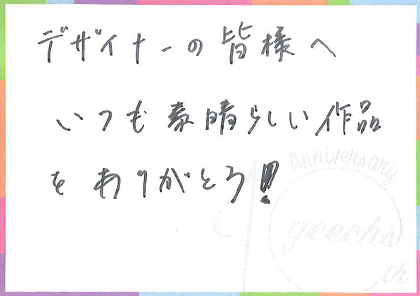 デザイナーの皆様へ
いつも素晴らしい作品
をありがとう!
Anniversary
10
geechs
th